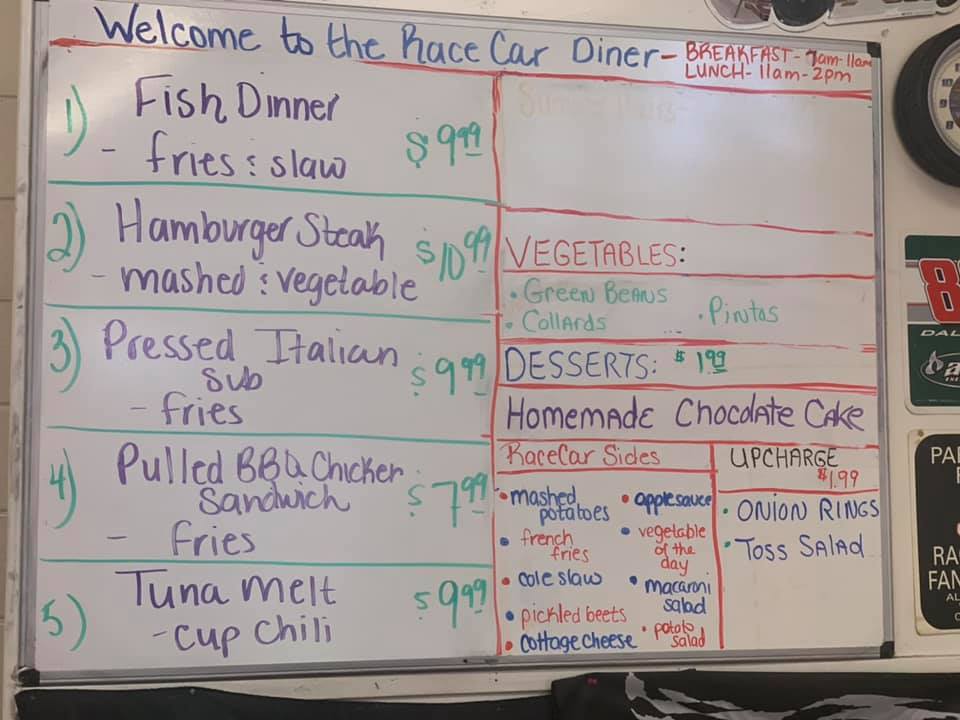 Welcome to the Race Car Diner - BREAKFAST - 7am-11am
LUNCH - 11am - 2pm
1) Fish Dinner
- fries & slaw $9.99
2) Hamburger Steak
- mashed & vegetable $10.99
3) Pressed Italian
Sub
- fries $9.99
4) Pulled BBQ Chicken
Sandwich
- fries $7.99
5) Tuna melt
- cup chili $9.99
VEGETABLES:
• Green Beans
• Collards
• Pintos
DESSERTS: $1.99
Homemade Chocolate Cake
RaceCar Sides
• mashed
potatoes
• french
fries
• cole slaw
• pickled beets
• cottage cheese
• applesauce
• vegetable
of the
day
• macaroni
salad
• potato
salad
UPCHARGE
$1.99
• ONION RINGS
• Toss Salad
8
DAL
PA
RA
FAN